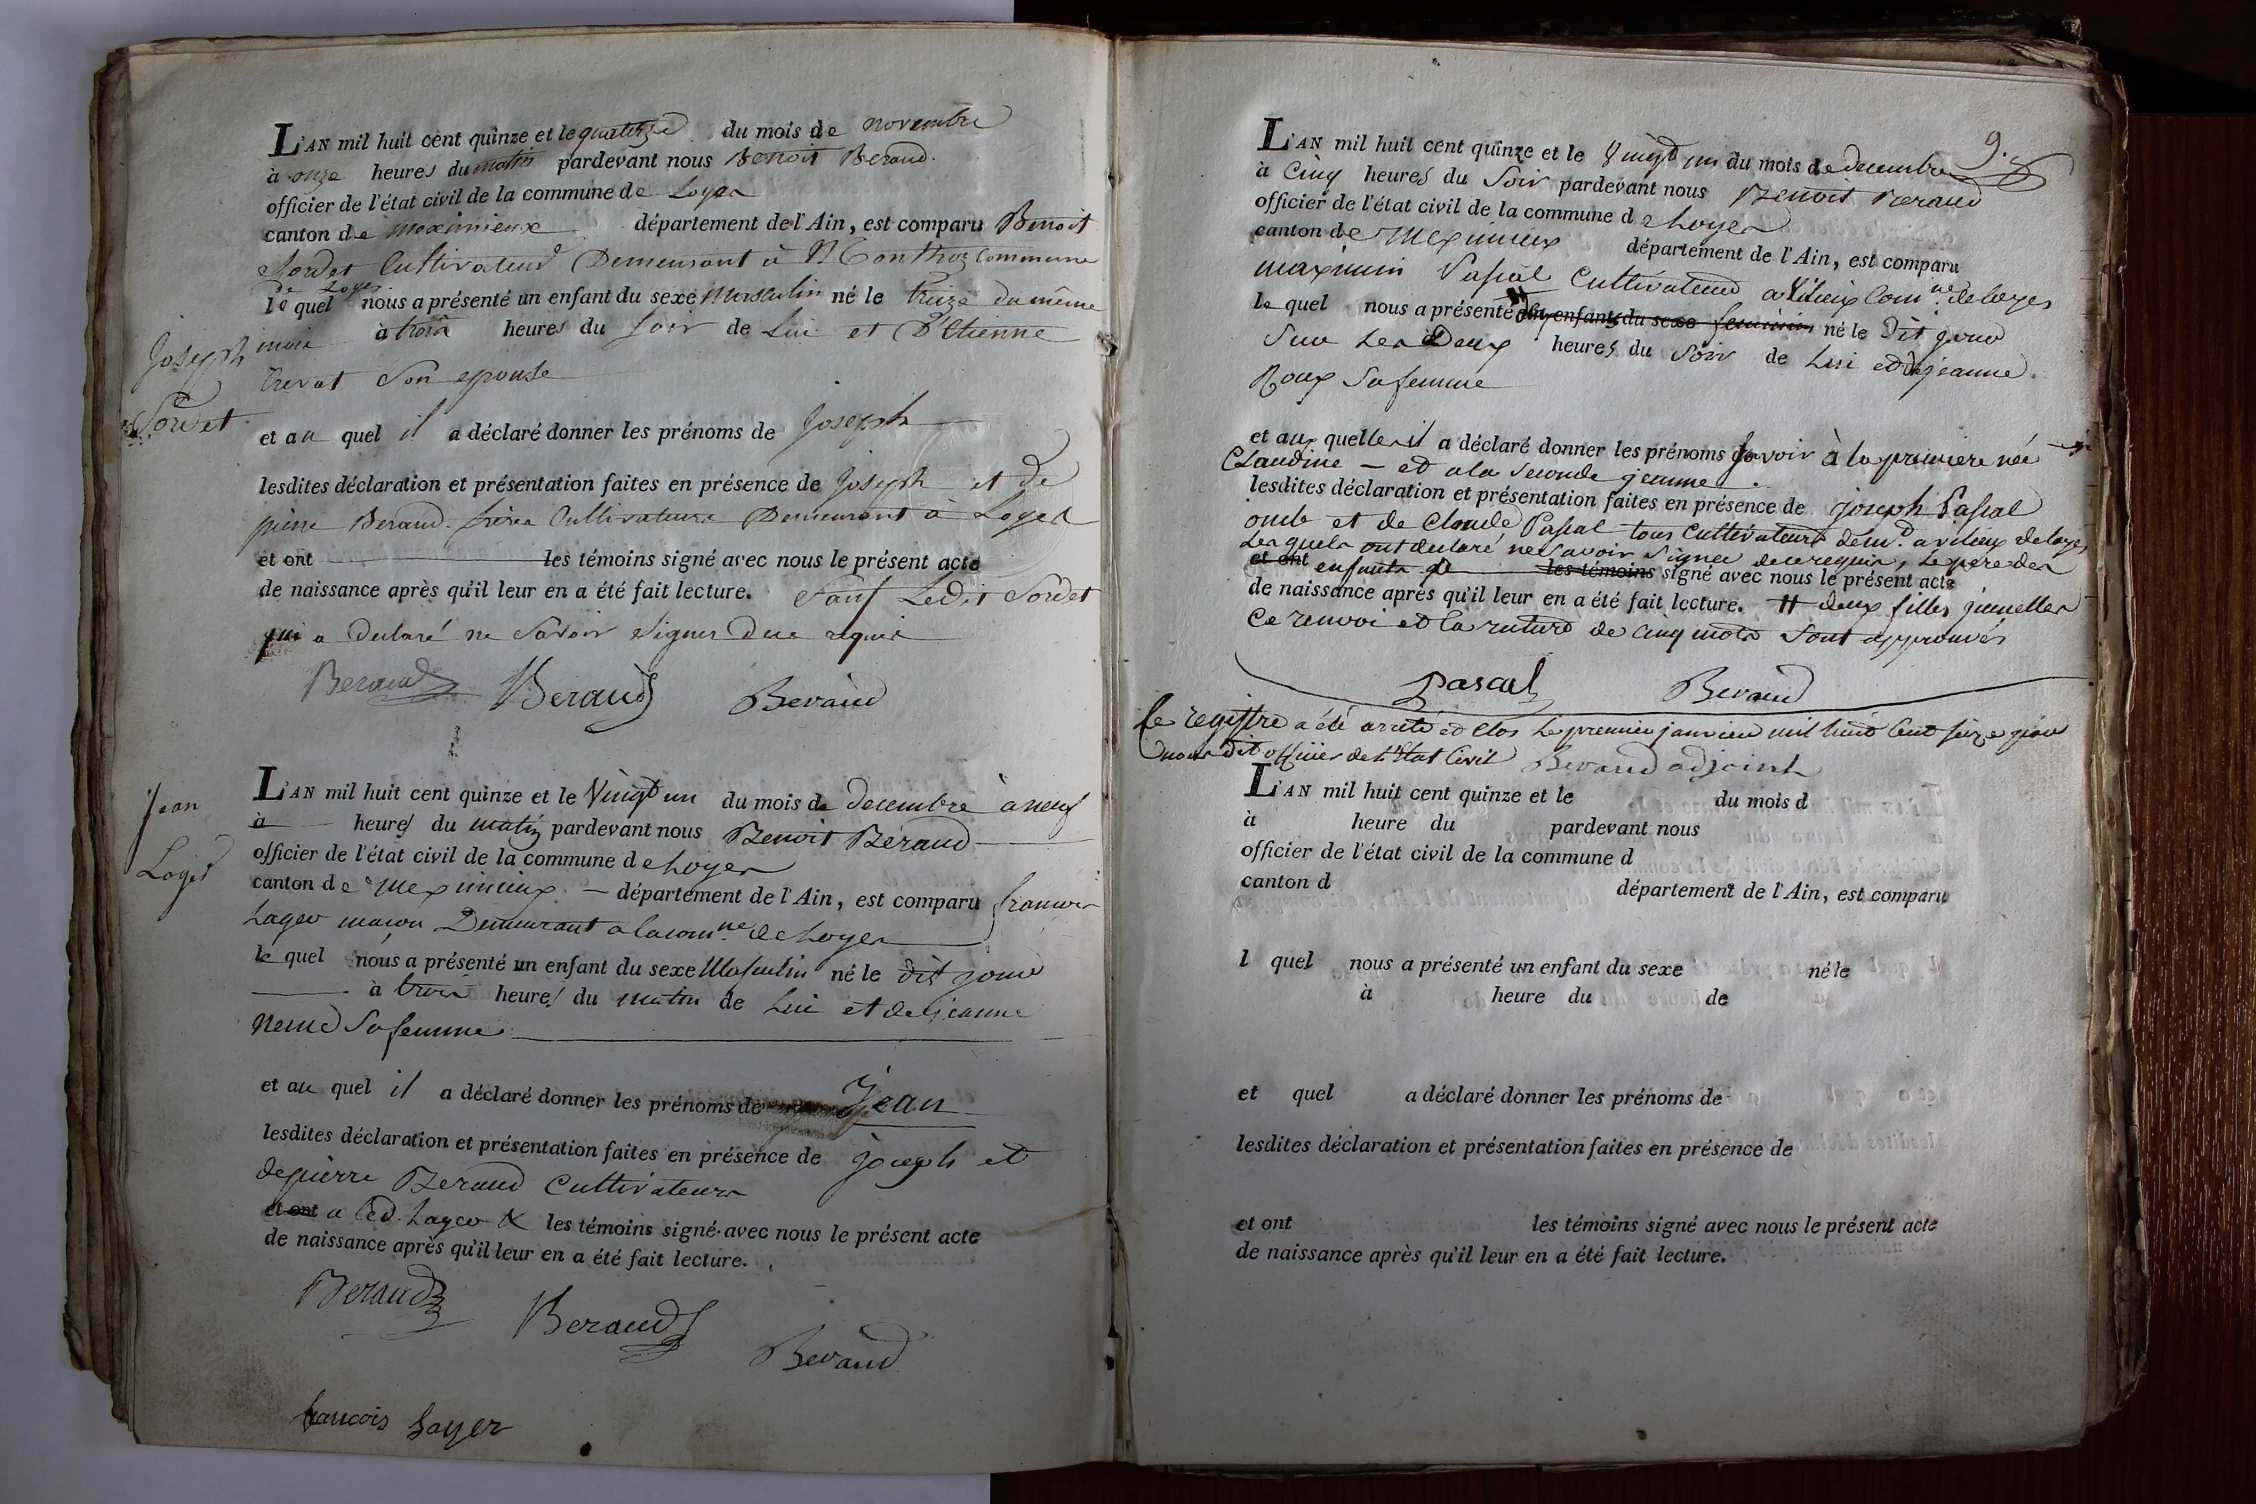 L'AN mil huit cent quinze et le quatorze du mois de novembre
à onze heures du matin pardevant nous Benoit Beraud
officier de l'état civil de la commune de Loyes
canton de meximieux département de l'Ain, est comparu Benoit
Sordet Cultivateur Demeurant à Monthoz Commune
de Loyes
le quel nous a présenté un enfant du sexe Masculin né le treize du même
mois à trois heures du soir de Lui et D'Etienne
trevat Son epouse
Joseph
Sordet
et au quel il a déclaré donner les prénoms de Joseph
lesdites déclaration et présentation faites en présence de Joseph et de
pierre Beraud frères Cultivateurs Demeurant à Loyes
et ont les témoins signé avec nous le présent acte
de naissance après qu'il leur en a été fait lecture. Sauf Ledit Sordet
qui a declaré ne Savoir signer Due requis
Beraud Beraud Beraud
L'AN mil huit cent quinze et le Vingt un du mois de decembre à neuf
à heures du matin pardevant nous Benoit Béraud
officier de l'état civil de la commune de Loyes
Jean
Loyer
canton de Meximieux département de l'Ain, est comparu francois
Layer macon Demeurant a la comne de Loyes
le quel nous a présenté un enfant du sexe Masculin né le dit jour
à trois heures du matin de Lui et de jeanne
sa femme
et au quel il a déclaré donner les prénoms de Jean
lesdites déclaration et présentation faites en présence de joseph et
de pierre Beraud Cultivateurs
et ont a led. Layer & les témoins signé avec nous le présent acte
de naissance après qu'il leur en a été fait lecture.
Beraud Beraud Beraud
francois Layer
9.
L'AN mil huit cent quinze et le Vingt un du mois de decembre
à Cinq heures du Soir pardevant nous Benoit Beraud
officier de l'état civil de la commune de Loyes
canton de Meximieux département de l'Ain, est comparu
maximin Pascal Cultivateur a Vilieux Comne de loyes
le quel nous a présenté # un enfant du sexe feminin né le Dit jour
Sur Les Deux heures du Soir de Lui et de jeanne
Roux Sa femme
et aux quelles il a déclaré donner les prénoms de Savoir à la premiere née
Claudine – et a la Seconde jeanne.
lesdites déclaration et présentation faites en présence de joseph Pascal
oncle et de Claude Pascal tous Cultivateurs demt. a vilieux de loyes
Les quels ont declaré ne Savoir Signer de ce requis, Le pere des
et ont enfants a les témoins signé avec nous le présent acte
de naissance après qu'il leur en a été fait lecture. # deux filles jumelles
Ce renvoi et la rature de cinq mots Sont approuvés
pascal Beraud
Le registre a été arreté et Clos Le premier janvier mil huit Cent seize par
nous dit officier de l'Etat Civil Beraud adjoint
L'AN mil huit cent quinze et le du mois d
à heure du pardevant nous
officier de l'état civil de la commune d
canton d département de l'Ain, est comparu
l quel nous a présenté un enfant du sexe né le
à heure du de
et quel a déclaré donner les prénoms de
lesdites déclaration et présentation faites en présence de
et ont les témoins signé avec nous le présent acte
de naissance après qu'il leur en a été fait lecture.